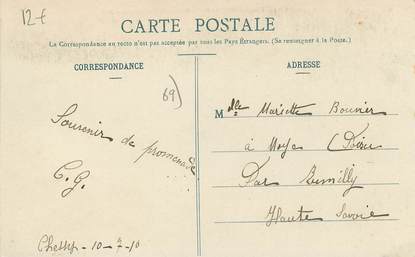 12 €
CARTE POSTALE
La Correspondance au recto n'est pas acceptée par tous les Pays Étrangers. (Se renseigner à la Poste.)
CORRESPONDANCE
69)
Souvenir de promenade
C. G.
10 - 7 - 10
ADRESSE
Mlle Mariette Bouvier
à Moye
Par Rumilly
Haute Savoie